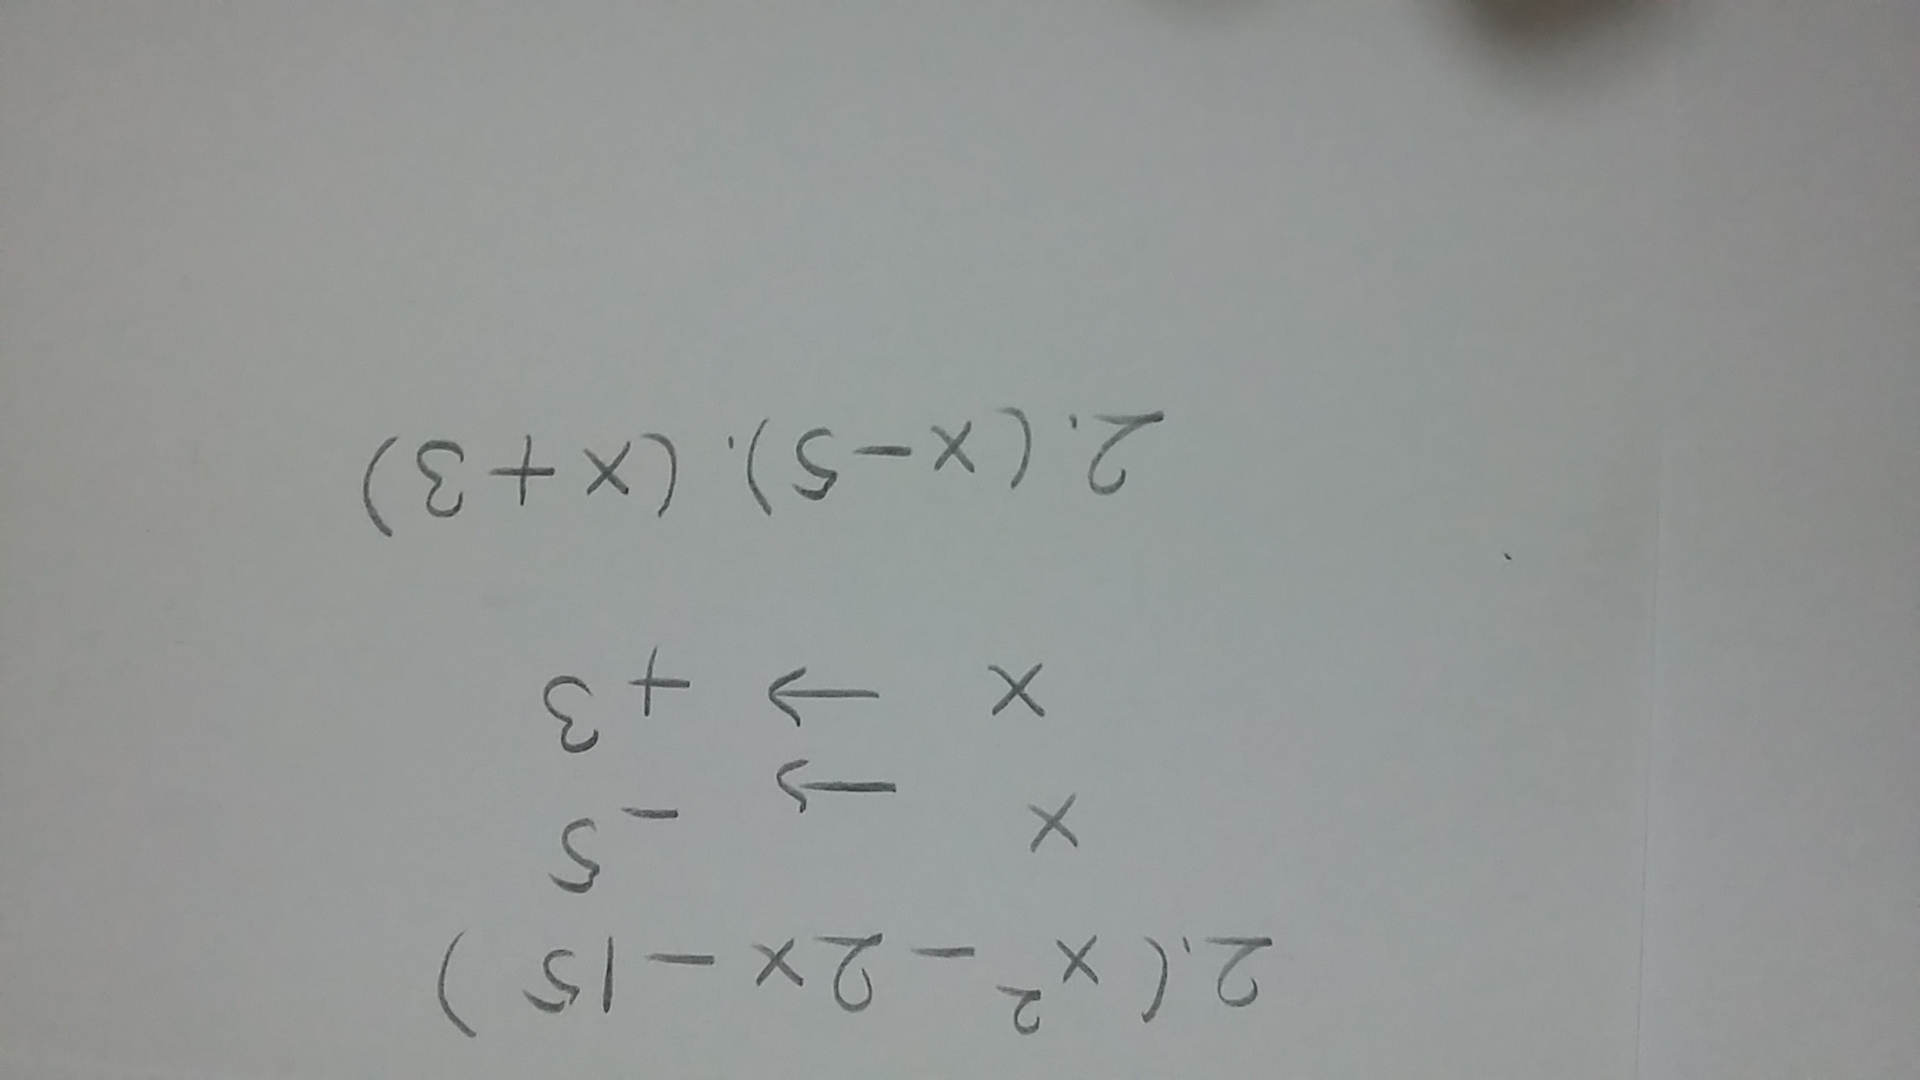 2.(x² - 2x - 15)
x → -5
x → +3
2.(x-5).(x+3)